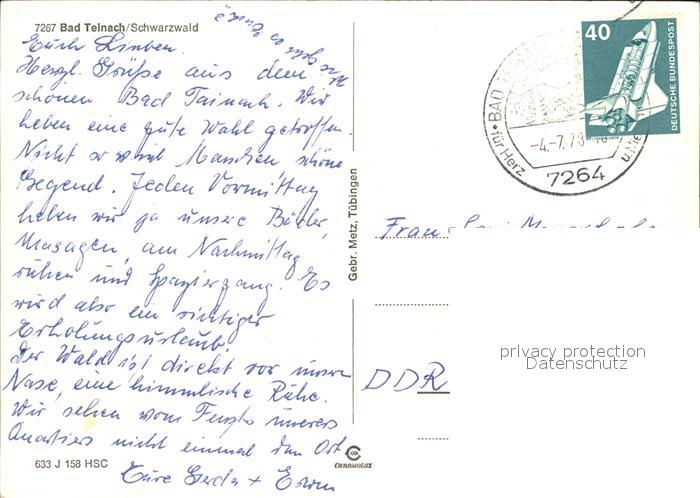 7267 Bad Teinach/Schwarzwald
Euch Lieben.
Herzl. Grüße aus dem
schönen Bad Tainach. Wir
haben eine gute Wahl getroffen
Nicht so viel Menschen schöne
Gegend. Jeden Vormittag
haben wir ja unsere Bäder,
Massagen, am Nachmittag
ruhen und Spaziergang. Es
wird also ein richtiger
Erholungsurlaub.
Der Wald ist direkt vor unsere
Nase, eine himmlische Ruhe.
Wir sehen vom Fenster unseres
Quartiers nicht einmal den Ort
Eure Gerda + Erwin
633 J 158 HSC
CHROMOLUX
Gebr. Metz, Tübingen
40
DEUTSCHE BUNDESPOST
BAD
-4.-7.78
für Herz
7264
Frau
DDR
privacy protection
Datenschutz